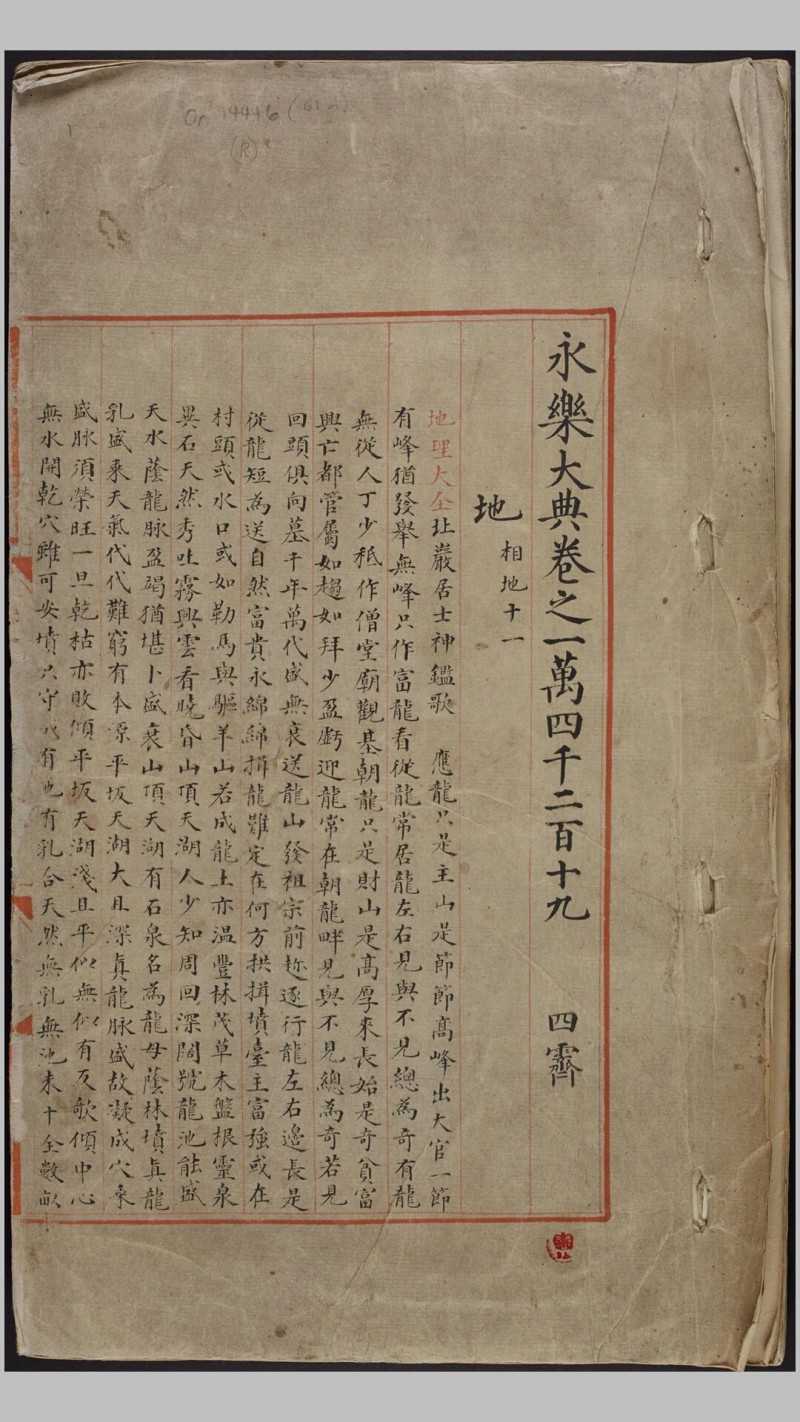 Or. 14446
(R)
永樂大典卷之一萬四千二百十九 四霽
地 相地十一
地理大全玨巖居士神鑑歌 應龍只是主山是節節高峰出大官一節
有峰猶發舉無峰只作富龍看從龍常居龍左右見與不見總為奇有龍
無從人丁少秪作僧堂廟觀基朝龍只是財山是高厚來長始是奇貧富
興亡都管屬如趨如拜少盈虧迎龍常在朝龍畔見與不見總為奇若見
回頭俱向墓千年萬代盛無衰送龍山發祖宗前迹逐行龍左右邊長是
從龍短為送自然富貴永綿綿揖龍難定在何方拱揖墳臺主富強或在
村頭或水口或如勒馬與驅羊山若成龍土亦温豐林茂草木盤根靈泉
異石天然秀吐霧興雲看曉昏山頂天湖人少知周回深闊號龍池能盛
天水蔭龍脉盈竭猶堪卜盛衰山頂天湖有石泉名為龍母蔭林墳真龍
乳盛乘天氣代代難窮有本源平坂天湖大且深真龍脉盛故凝成穴乘
盛脉須榮旺一旦乾枯亦敗傾平坂天湖淺且平似無似有及欹傾中心
無水開乾穴雖可安墳只守 有也有乳合天然無乳無池未十全數畝